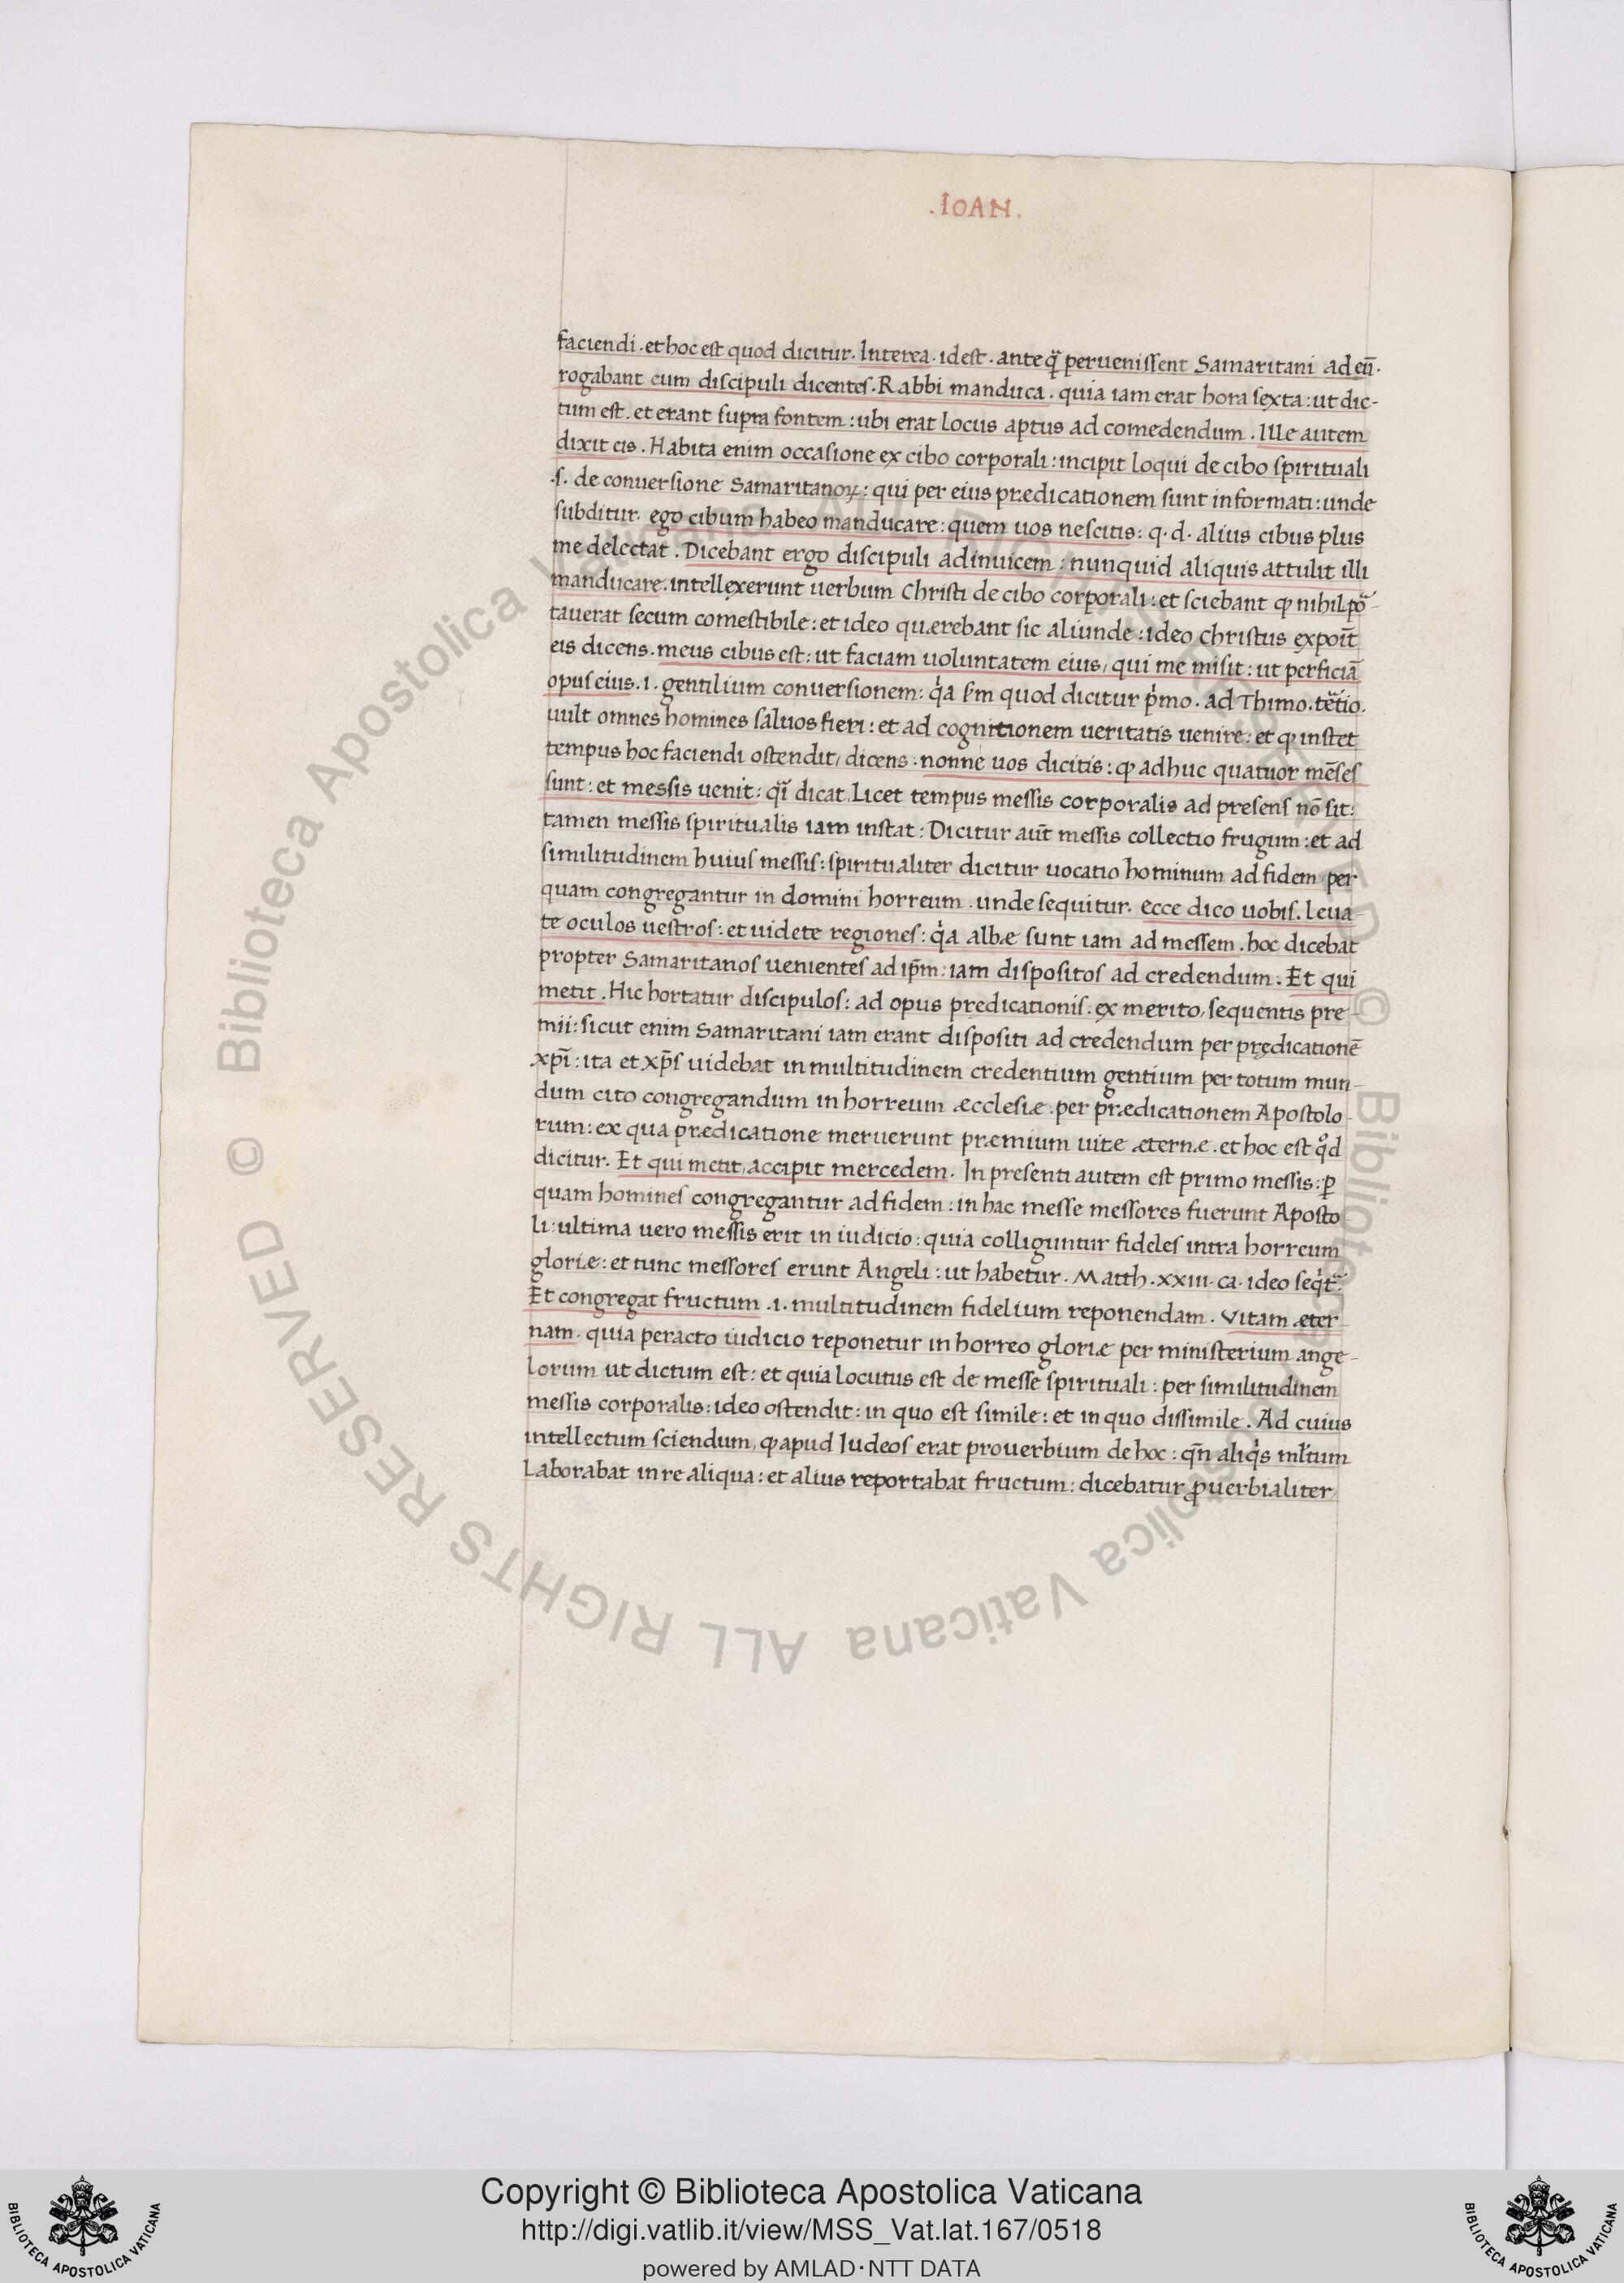 .IOAN.
faciendi . et hoc est quod dicitur . Interea . idest . ante q̃ peruenissent Samaritani ad eũ .
rogabant eum discipuli dicentes . Rabbi manduca . quia iam erat hora sexta : ut dic-
tum est . et erant supra fontem : ubi erat locus aptus ad comedendum . Ille autem
dixit eis . Habita enim occasione ex cibo corporali : incipit loqui de cibo spirituali
.s. de conuersione Samaritanoꝝ : qui per eius prædicationem sunt informati : unde
subditur . ego cibum habeo manducare : quem uos nescitis : q . d . alius cibus plus
me delectat . Dicebant ergo discipuli adinuicem : nunquid aliquis attulit illi
manducare . intellexerunt uerbum Christi de cibo corporali : et sciebant ꝙ nihil põ-
tauerat secum comestibile : et ideo quærebant sic aliunde : ideo Christus expoĩt
eis dicens . meus cibus est : ut faciam uoluntatem eius , qui me misit : ut perficiã
opus eius . i . gentilium conuersionem : qͥa ẜm quod dicitur pͥmo . ad Thimo . tẽtio .
uult omnes homines saluos fieri : et ad cognitionem ueritatis uenire : et ꝙ instet
tempus hoc faciendi ostendit , dicens . nonne uos dicitis : ꝙ adhuc quatuor mẽses
sunt : et messis uenit : qĩ dicat . Licet tempus messis corporalis ad presens nõ sit :
tamen messis spiritualis iam instat : Dicitur aut̃ messis collectio frugum : et ad
similitudinem huius messis : spiritualiter dicitur uocatio hominum ad fidem per
quam congregantur in domini horreum . unde sequitur . ecce dico uobis . leua-
te oculos uestros : et uidete regiones : qͥa albæ sunt iam ad messem . hoc dicebat
propter Samaritanos uenientes ad ip̃m : iam dispositos ad credendum . Et qui
metit . Hic hortatur discipulos : ad opus predicationis : ex merito , sequentis pre-
mii : sicut enim Samaritani iam erant dispositi ad credendum per prędicationẽ
xp̃i : ita et xp̃s uidebat in multitudinem credentium gentium per totum mun-
dum cito congregandum in horreum æcclesiæ . per prædicationem Apostolo-
rum : ex qua prædicatione meruerunt præmium uitæ æternæ . et hoc est qͦd
dicitur . Et qui metit , accipit mercedem . In presenti autem est primo messis : ꝑ
quam homines congregantur ad fidem : in hac messe messores fuerunt Aposto
li : ultima uero messis erit in iudicio : quia colliguntur fideles intra horreum
gloriæ : et tunc messores erunt Angeli : ut habetur . Matth . xxiii . ca . ideo seqͥt̃ .
Et congregat fructum . i . multitudinem fidelium reponendam . Vitam æter-
nam . quia peracto iudicio reponetur in horreo gloriæ per ministerium ange-
lorum ut dictum est : et quia locutus est de messe spirituali : per similitudinem
messis corporalis : ideo ostendit : in quo est simile : et in quo dissimile . Ad cuius
intellectum sciendum , ꝙ apud Iudeos erat prouerbium de hoc : qñ aliqͥs ml̃tum
Laborabat in re aliqua : et alius reportabat fructum : dicebatur ꝓuerbialiter ,
© Biblioteca Apostolica Vaticana ALL RIGHTS RESERVED © Biblioteca Apostolica Vaticana ALL RIGHTS RESERVED
Copyright © Biblioteca Apostolica Vaticana
http://digi.vatlib.it/view/MSS_Vat.lat.167/0518
powered by AMLAD·NTT DATA
BIBLIOTECA APOSTOLICA VATICANA
BIBLIOTECA APOSTOLICA VATICANA